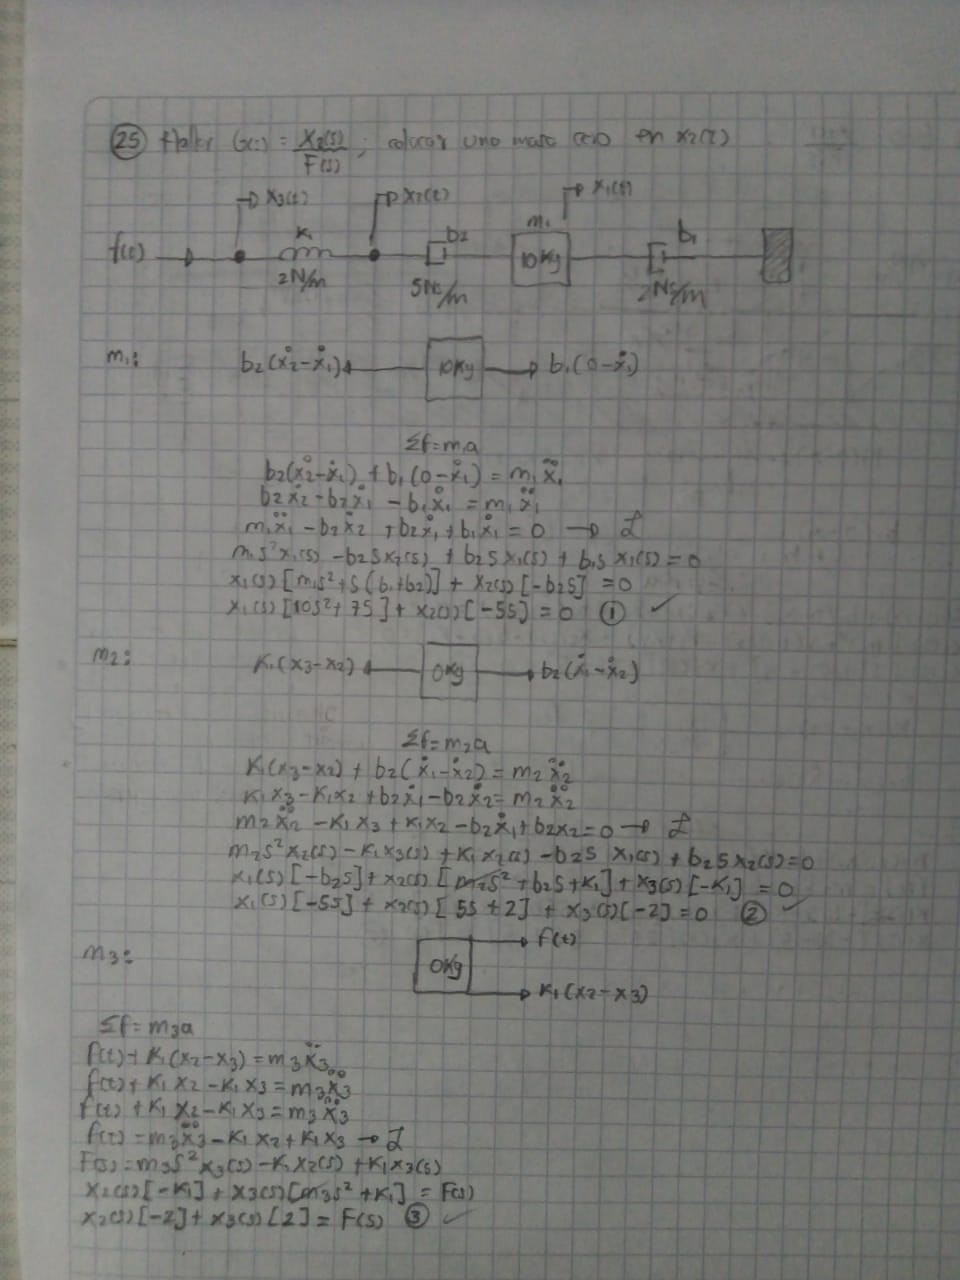 25 Hallar G(s) = X2(s)/F(s) ; colocar una masa cero en x2(t)
x3(t) x2(t) x1(t)
f(t) K1 b2 m1 10Kg b1
2N/m 5Ns/m 2Ns/m
m1: b2(ẋ2-ẋ1) 10Kg b1(0-ẋ1)
Σf=m1a
b2(ẋ2-ẋ1) + b1(0-ẋ1) = m1ẍ1
b2ẋ2-b2ẋ1 -b1ẋ1 = m1ẍ1
m1ẍ1 -b2ẋ2 +b2ẋ1+b1ẋ1 = 0 → ℒ
m1s²x1(s) -b2sx2(s) + b2sx1(s) + b1s x1(s) = 0
x1(s)[m1s²+s(b1+b2)] + x2(s)[-b2s] = 0
x1(s)[10s²+7s] + x2(s)[-5s] = 0 ① ✓
m2: K1(x3-x2) 0Kg b2(ẋ1-ẋ2)
Σf=m2a
K1(x3-x2) + b2(ẋ1-ẋ2) = m2ẍ2
K1x3-K1x2+b2ẋ1-b2ẋ2=m2ẍ2
m2ẍ2 -K1x3 +K1x2-b2ẋ1+b2x2=0 → ℒ
m2s²x2(s)-K1x3(s)+K1x2(s)-b2s x1(s)+b2sx2(s)=0
x1(s)[-b2s]+x2(s)[m2s²+b2s+K1]+x3(s)[-K1] = 0
x1(s)[-5s]+ x2(s)[5s+2] + x3(s)[-2]=0 ② ✓
m3: 0Kg f(t)
K1(x2-x3)
Σf=m3a
f(t)+K1(x2-x3)=m3ẍ3
f(t)+K1x2-K1x3=m3ẍ3
f(t)+K1x2-K1x3=m3ẍ3
f(t)=m3ẍ3-K1x2+K1x3 → ℒ
F(s)=m3s²x3(s)-K1x2(s)+K1x3(s)
x2(s)[-K1]+x3(s)[m3s²+K1] = F(s)
x2(s)[-2]+x3(s)[2]= F(s) ③ ✓